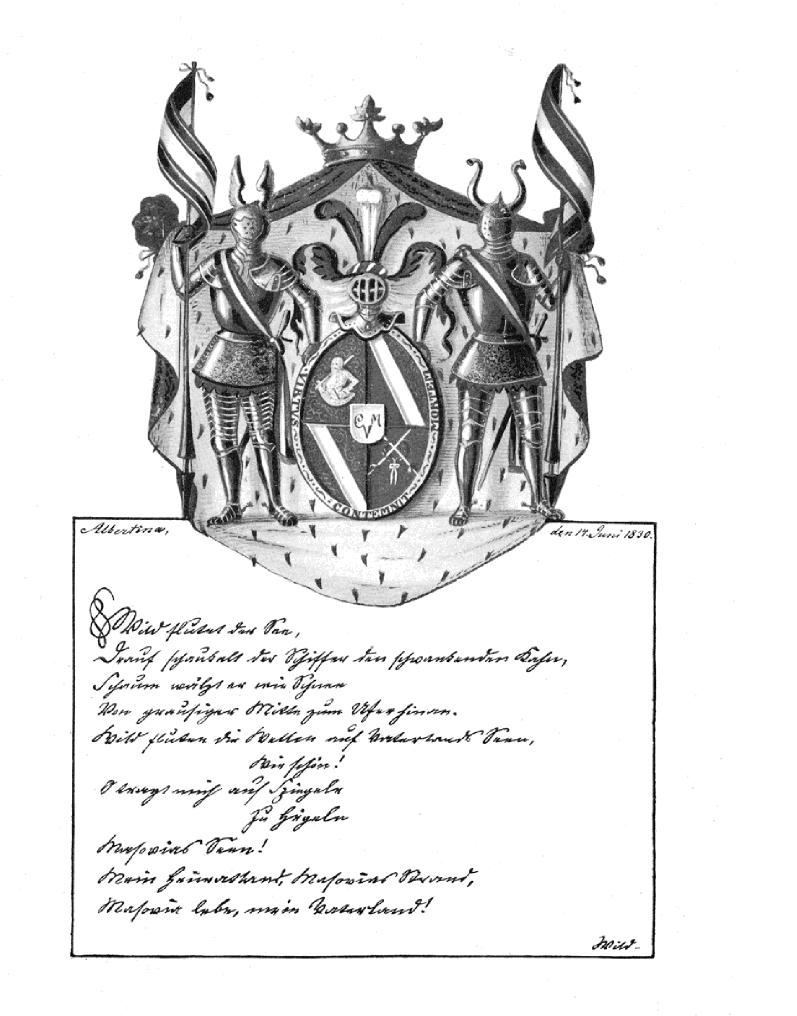 VIRTUS
MORTEM
CVM
CONTEMNIT
Albertina,
den 14. Juni 1830.
Wild flutet der See,
Drauf schaukelt der Schiffer den schwankenden Kahn,
Schaum wälzt er wie Schnee
Von grausiger Mitte zum Ufer hinan.
Wild fluten die Wellen auf Vaterlands Seen,
Wie schön!
O tragt mich auf Spiegeln
Zu Hügeln
Masovias Seen!
Mein Heimatland, Masovias Strand,
Masovia lebe, mein Vaterland!
Wild